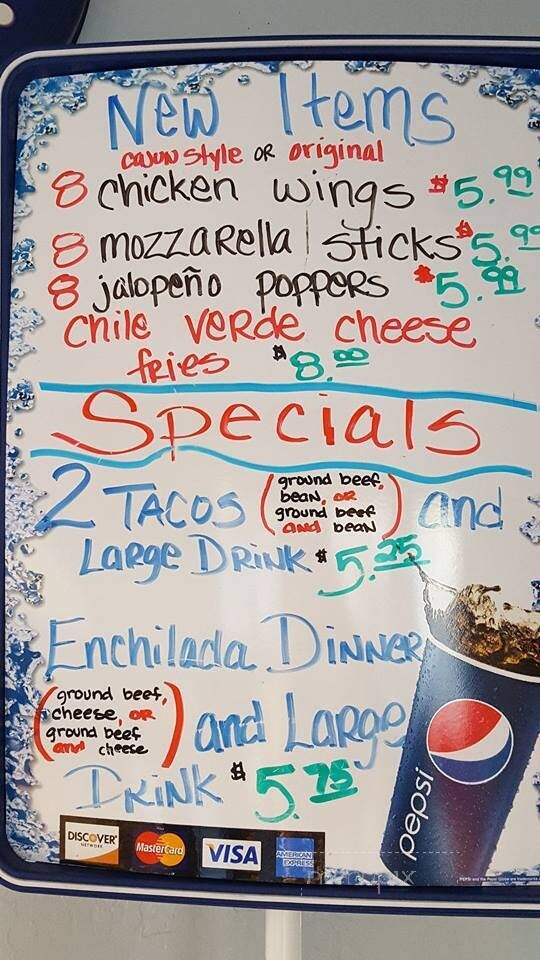 New Items
cajun style or original
8 chicken wings $5.99
8 mozzarella sticks $5.99
8 jalopeño poppers $5.99
Chile verde cheese
fries $8.00
Specials
2 Tacos (ground beef, bean, or ground beef and bean) and
Large Drink $5.25
Enchilada Dinner
(ground beef, cheese, or ground beef and cheese) and Large
Drink $5.75
pepsi
DISCOVER NETWORK
MasterCard
VISA
AMERICAN EXPRESS